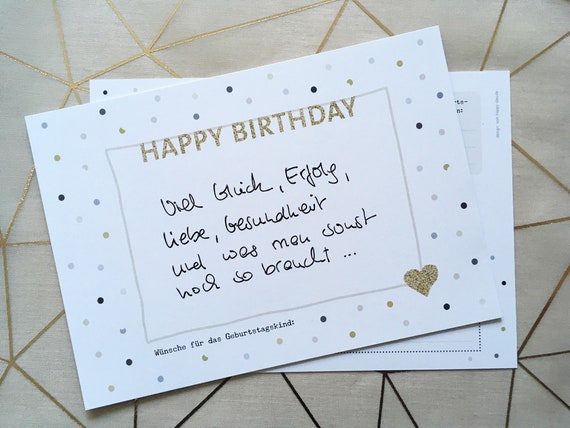 HAPPY BIRTHDAY
Viel Glück, Erfolg,
Liebe, Gesundheit
und was man sonst
noch so braucht ...
Wünsche für das Geburtstagskind: